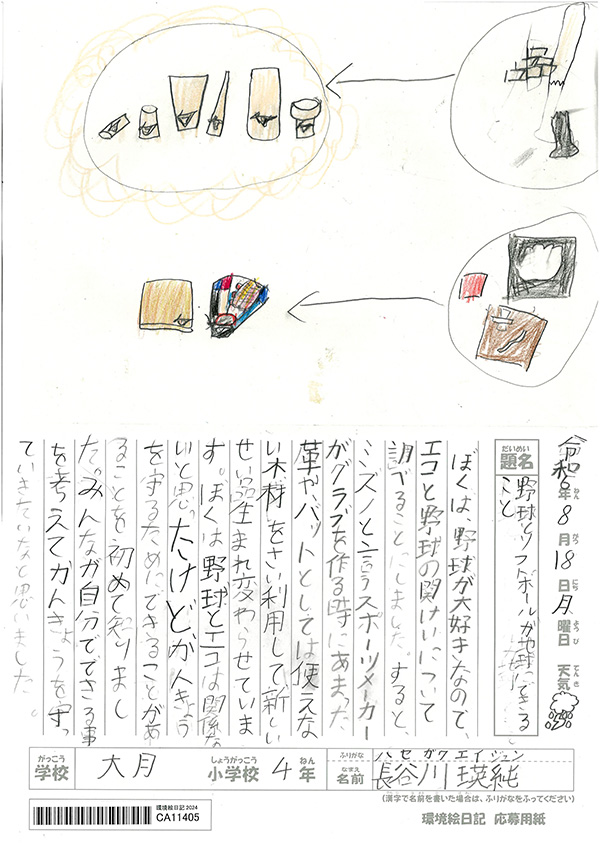 令和6年8月18日月曜日 天気
ねん がつ にち ようび てんき
だいめい
題名
野球とソフトボールが地球にできる
こと
ぼくは、野球が大好きなので、
エコと野球の関けいについて
調べることにしました。すると、
ミズノと言うスポーツメーカー
がグラブを作る時にあまった
革や、バットとしては使えな
い木材をさい利用して新しい
せい品生まれ変わらせていま
す。ぼくは野球とエコは関係な
いと思ったけどかんきょう
を守るためにできることがあ
ることを初めて知りまし
た。みんなが自分でできる事
を考えてかんきょうを守っ
ていきたいなと思いました。
がっこう しょうがっこう ねん
学校 大月 小学校 4年
ふりがな ハセガワエイジュン
なまえ
名前 長谷川瑛純
(漢字で名前を書いた場合は、ふりがなをふってください)
環境絵日記 2024
CA11405
環境絵日記 応募用紙